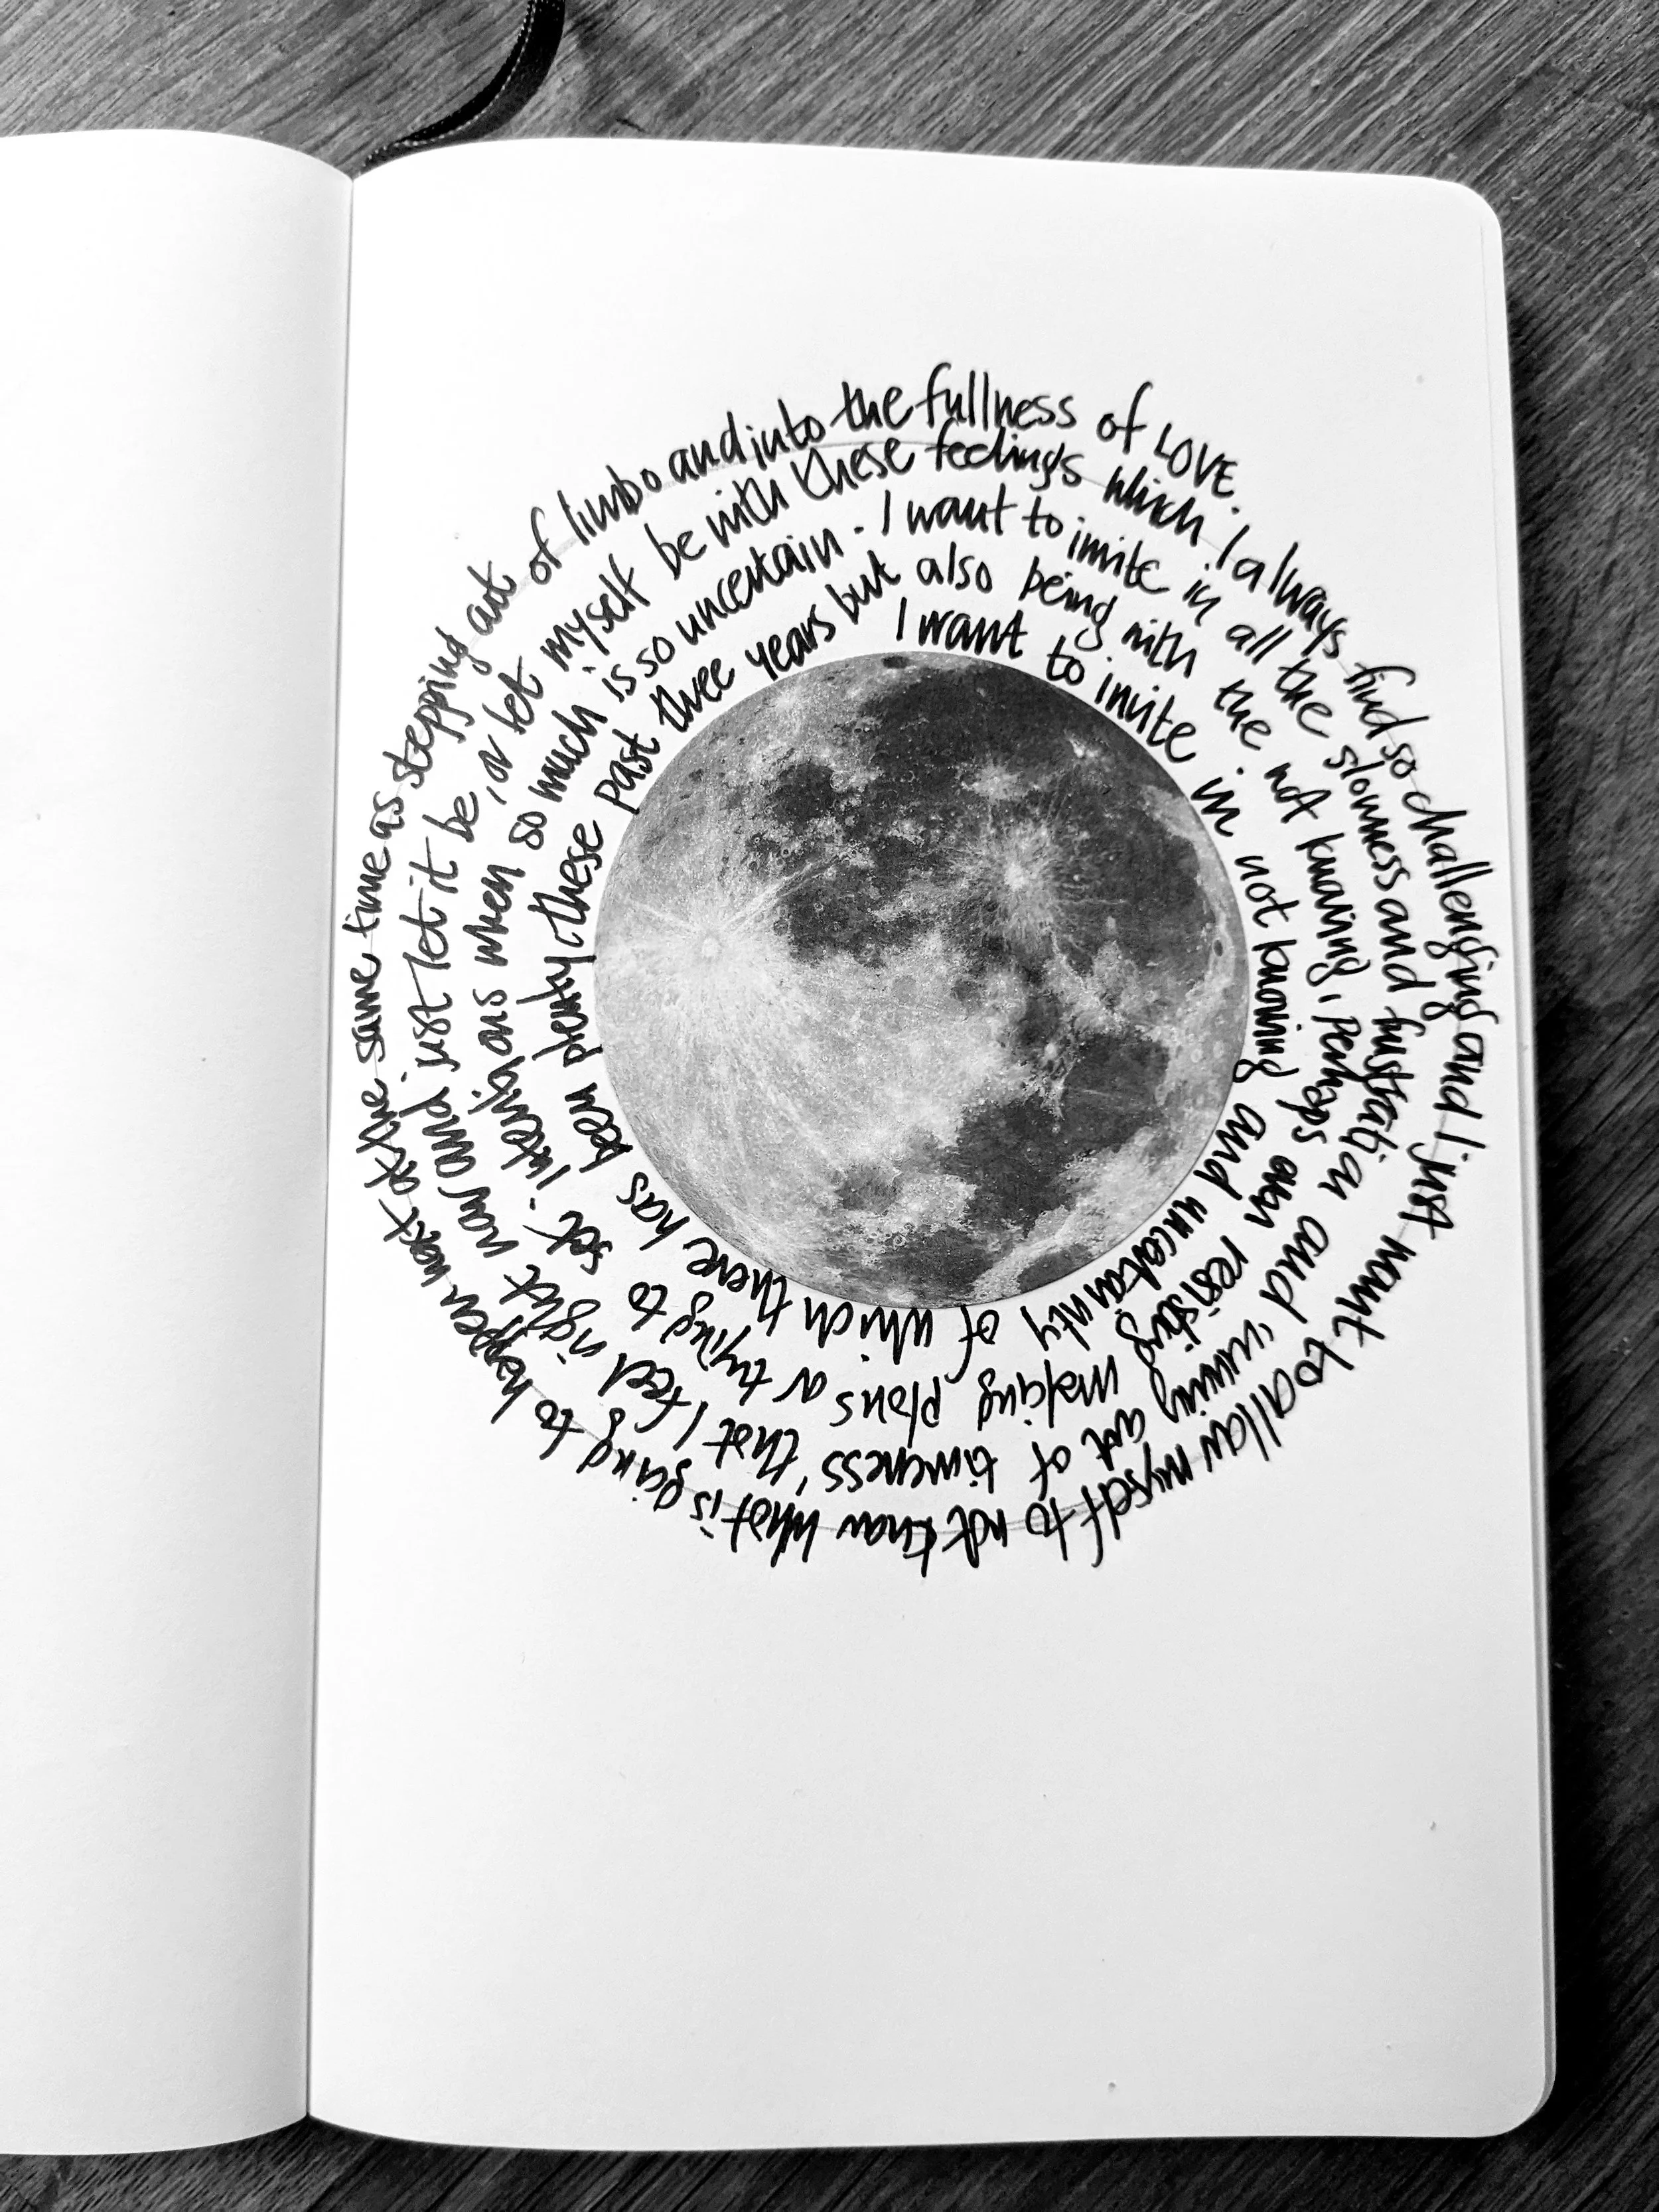 I want to invite in not knowing and uncertanity of which there has been plenty (these past three years but
also being with the not knowing, perhaps even resisting making plans or trying to set intentions when so much is so uncertain.
I want to invite in all the slowness and frustration and running out of timeness' that I feel right now and just let it be, or let myself be with these
feelings which I always find so challenging and I just want to allow myself to not know what is going to happen next at the same time as stepping out of limbo and into the fullness of LOVE.